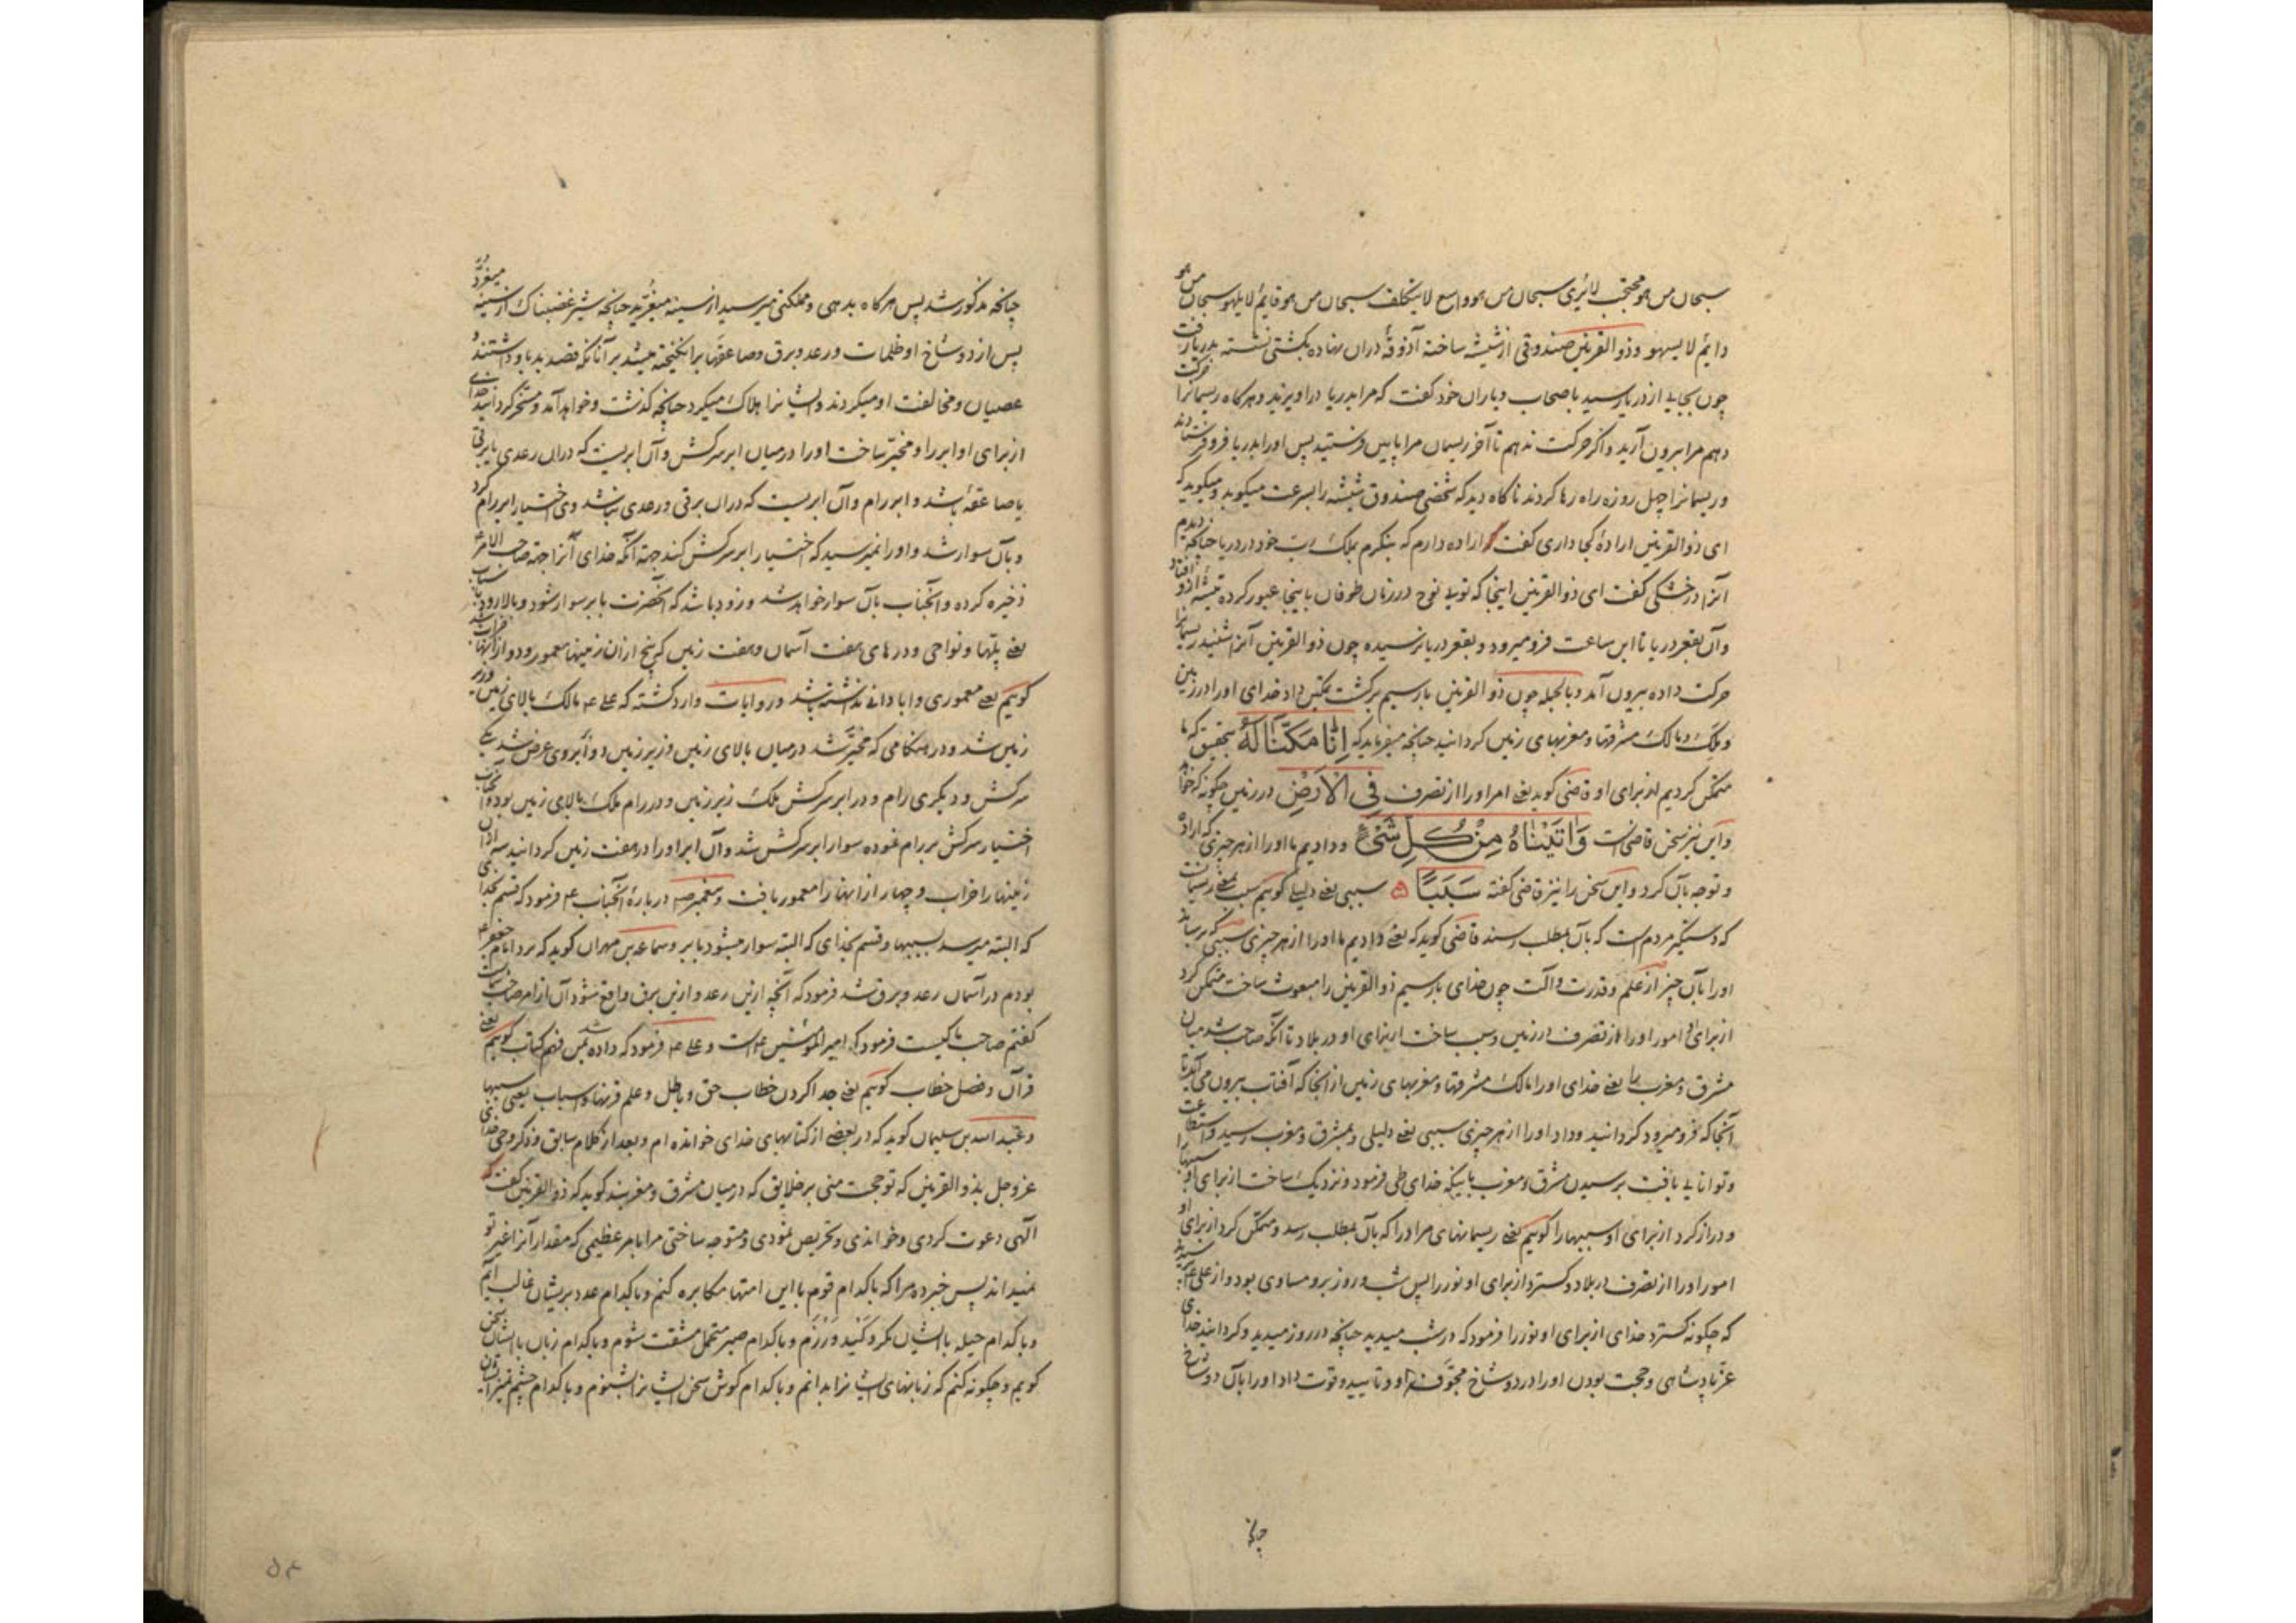 سبحان من هو محتجب لا یری سبحان من هو واسع لا یتکلف سبحان من هو قایم لا یلهو سبحان من هو
دایم لا یسهو و ذو القرنین صندوقی از شیشه ساخته آذوقهٔ دران نهاده بکشتی نشسته بدریا رفت
چون بجایی از دریا رسید باصحاب و یاران خود کفت که مرا بدریا دراویزید و هرکاه ریسمانرا حرکت
دهم مرا بیرون آرید و اکر حرکت ندهم تا آخر ریسمان مرا پایین فرستید پس اورا بدریا فرو فرستادند
و ریسمانرا چهل روزه راه رها کردند ناکاه دید که شخصی صندوق شیشه را بسرعت میکوبد و میکوید که
ای ذو القرنین ارادهٔ کجا داری کفت اراده دارم که بنکرم بملک رب خود در دریا چنانکه دیدم
آنرا در خشکی کفت ای ذو القرنین اینجا که تویی نوح در زمان طوفان باینجا عبور کرده تیشهٔ ازو افتاد
و آن بقعر دریا تا این ساعت فرو میرود و بقعر دریا نرسیده چون ذو القرنین آنرا شنید ریسمانرا
حرکت داده بیرون آمد و بالجمله چون ذو القرنین بازسیم برکشت تمکین داد خدای اورا در زمین
و ملک و مالک مشرقها و مغربهای زمین کردانید چنانچه میفرماید که اِنَّا مَکَّنَّا لَهُ بتحقیق که ما
متمکن کردیم از برای او قاضی کوید یعنی امر اورا از تصرف فِی الْاَرْضِ در زمین چکونه که خواهد
و این نیز سخن قاضی است وَاٰتَیْنَاهُ مِنْ کُلِّ شَیْءٍ و دادیم ما اورا از هر چیزی که اراده
و توجه بآن کرد و این سخن را نیز قاضی کفته سَبَبًا سببی یعنی دلیلی کوییم سبب بمعنی ریسمانست
که دستکیر مردم است که بآن بمطلب رسند قاضی کوید که یعنی دادیم ما اورا از هر چیزی سببی که برساند
اورا بآن چیز از علم و قدرت و آلت چون خدای بازسیم ذو القرنین را مبعوث ساخت متمکن کرد
از برای او امور اورا از تصرف در زمین و سبب ساخت از برای او در بلاد تا آنکه صاحب شد میان
مشرق و مغرب را یعنی خدای اورا مالک مشرقها و مغربهای زمین از انجا که آفتاب بیرون می آید تا
آنجا که فرو میرود کردانید و داد اورا از هر چیزی سببی یعنی دلیلی و بمشرق و مغرب رسید و استطاعت
و توانایی یافت برسیدن مشرق و مغرب باینکه خدای طی فرمود و نزدیک ساخت از برای او سببها را
و دراز کرد از برای او سببها را کوییم یعنی ریسمانهای مراد را که بآن بمطلب رسد و متمکن کرد از برای او
امور اورا از تصرف در بلاد و کسترد از برای او نور را پس شب و روز برو مساوی بود و از علی ع پرسیدند
که چکونه کسترد خدای از برای او نور را فرمود که در شب میدید چنانچه در روز میدید و کردانید خدای
عز پادشاهی و حجت بودن اورا در دو شاخ مجوف او و تایید و قوت داد اورا بآن دو شاخ
چنانچه
چنانچه مذکور شد پس هرکاه بدهی و مملکتی میرسید از سینه میغرید چنانچه شیر غضبناک از سینه میغرد
پس از دو شاخ او ظلمات و رعد و برق و صاعقها برانکیخته میشد بر آنانکه قصد بد باو داشتند و
عصیان و مخالفت او میکردند و ایشانرا هلاک میکرد چنانچه کذشت و خواهد آمد و مسخر کردانید خدای
از برای او ابر را و مخیر ساخت اورا در میان ابر سرکش و آن ابریست که دران رعدی یا برقی
یا صاعقه باشد و ابر رام و آن ابریست که دران برقی و رعدی نباشد وی اختیار ابر رام کرد
و بآن سوار شد و اورا نمیرسید که اختیار ابر سرکش کند جهة آنکه خدای آنرا جهة صاحب الامر ع
ذخیره کرده و آنجناب بآن سوار خواهد شد و زود باشد که آنحضرت بابر سوار شود و بالا رود باسباب
یعنی پلها و نواحی و درهای هفت آسمان و هفت زمین که پنج ازان زمینها معمور و دو از آنها خراب باشد
کوییم یعنی معموری و ابادانی نداشته باشد و در روایات وارد کشته که علی ع مالک بالای زمین و زیر
زمین شد و در هنکامی که مخیر شد در میان بالای زمین و زیر زمین دو ابر بروی عرض شد یکی
سرکش و دیکری رام و در ابر سرکش ملک زیر زمین و در رام ملک بالای زمین بود و آنجناب
اختیار سرکش بر رام نموده سوار ابر سرکش شد و آن ابر اورا در هفت زمین کردانید سه ازان
زمینها را خراب و چهار از انها را معمور یافت و پیغمبر ص در بارهٔ آنجناب ع فرمود که قسم بخدای
که البته میرسد بسببها و قسم بخدای که البته سوار میشود بابر و سماعة بن مهران کوید که نزد امام جعفر ع
بودم در آسمان رعد و برق شد فرمود که آنچه ازین رعد و ازین برق واقع شود آن از امر صاحب شماست
کفتم صاحب ما کیست فرمود که امیر المؤمنین ع است و علی ع فرمود که داده شد بمن فهم کتاب کوییم یعنی
قرآن و فصل خطاب کوییم یعنی جدا کردن خطاب حق و باطل و علم قرنها و اسباب یعنی سببها
و عبد الله بن سلیمان کوید که در بعضی از کتابهای خدای خوانده ام و بعد از کلام سابق و ذکر وحی خدای
عز و جل بذو القرنین که تو حجت منی بر خلایق که در میان مشرق و مغربند کوید که ذو القرنین کفت که
الٓهی دعوت کردی و خواندی و تحریص نمودی و متوجه ساختی مرا بامر عظیمی که مقدار آنرا غیر تو
نمیداند پس خبر ده مرا که باکدام قوم با این امتها مکابره کنم و باکدام عدد بریشان غالب آیم
و باکدام حیله با ایشان مکر و کَید ورزم و باکدام صبر متحمل مشقت شوم و باکدام زبان با ایشان سخن
کویم و چکونه کنم که زبانهای ایشانرا بدانم و باکدام کوش سخن ایشانرا بشنوم و باکدام چشم تمیز ایشان